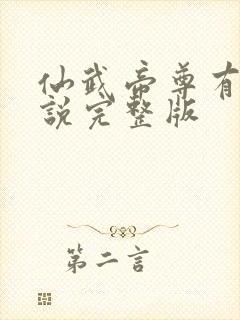 仙武帝尊有
說完整版
第二言